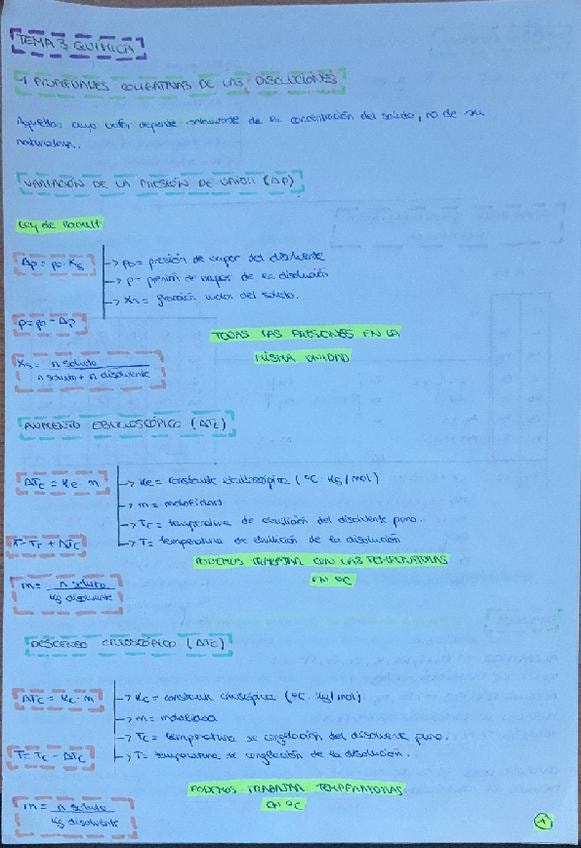 TEMA 3 QUIMICA
4 PROPIEDADES COLIGATIVAS DE LAS DISOLUCIONES
Aquellas cuyo valor depende solamente de la concentración del soluto, no de su
naturaleza.
VARIACIÓN DE LA PRESIÓN DE VAPOR (Δp)
Ley de Raoult
Δp = po · Xs
→ po = presión de vapor del disolvente
→ p = presión de vapor de la disolución
→ Xs = fracción molar del soluto.
p = po - Δp
TODAS LAS PRESIONES EN LA
MISMA UNIDAD
Xs = n soluto / n soluto + n disolvente
AUMENTO EBULLOSCÓPICO (ΔTe)
ΔTe = Ke · m
→ Ke = constante ebulloscópica (ºC · kg/mol)
→ m = molalidad
→ Te = temperatura de ebullición del disolvente puro.
→ T = temperatura de ebullición de la disolución
T = Te + ΔTe
PODEMOS TRABAJAR CON LAS TEMPERATURAS
EN ºC
m = n soluto / kg disolvente
DESCENSO CRIOSCÓPICO (ΔTc)
ΔTc = Kc · m
→ Kc = constante crioscópica (ºC · kg/mol)
→ m = molalidad
→ Tc = temperatura de congelación del disolvente puro.
→ T = temperatura de congelación de la disolución.
T = Tc - ΔTc
PODEMOS TRABAJAR TEMPERATURAS
EN ºC
m = n soluto / kg disolvente
1